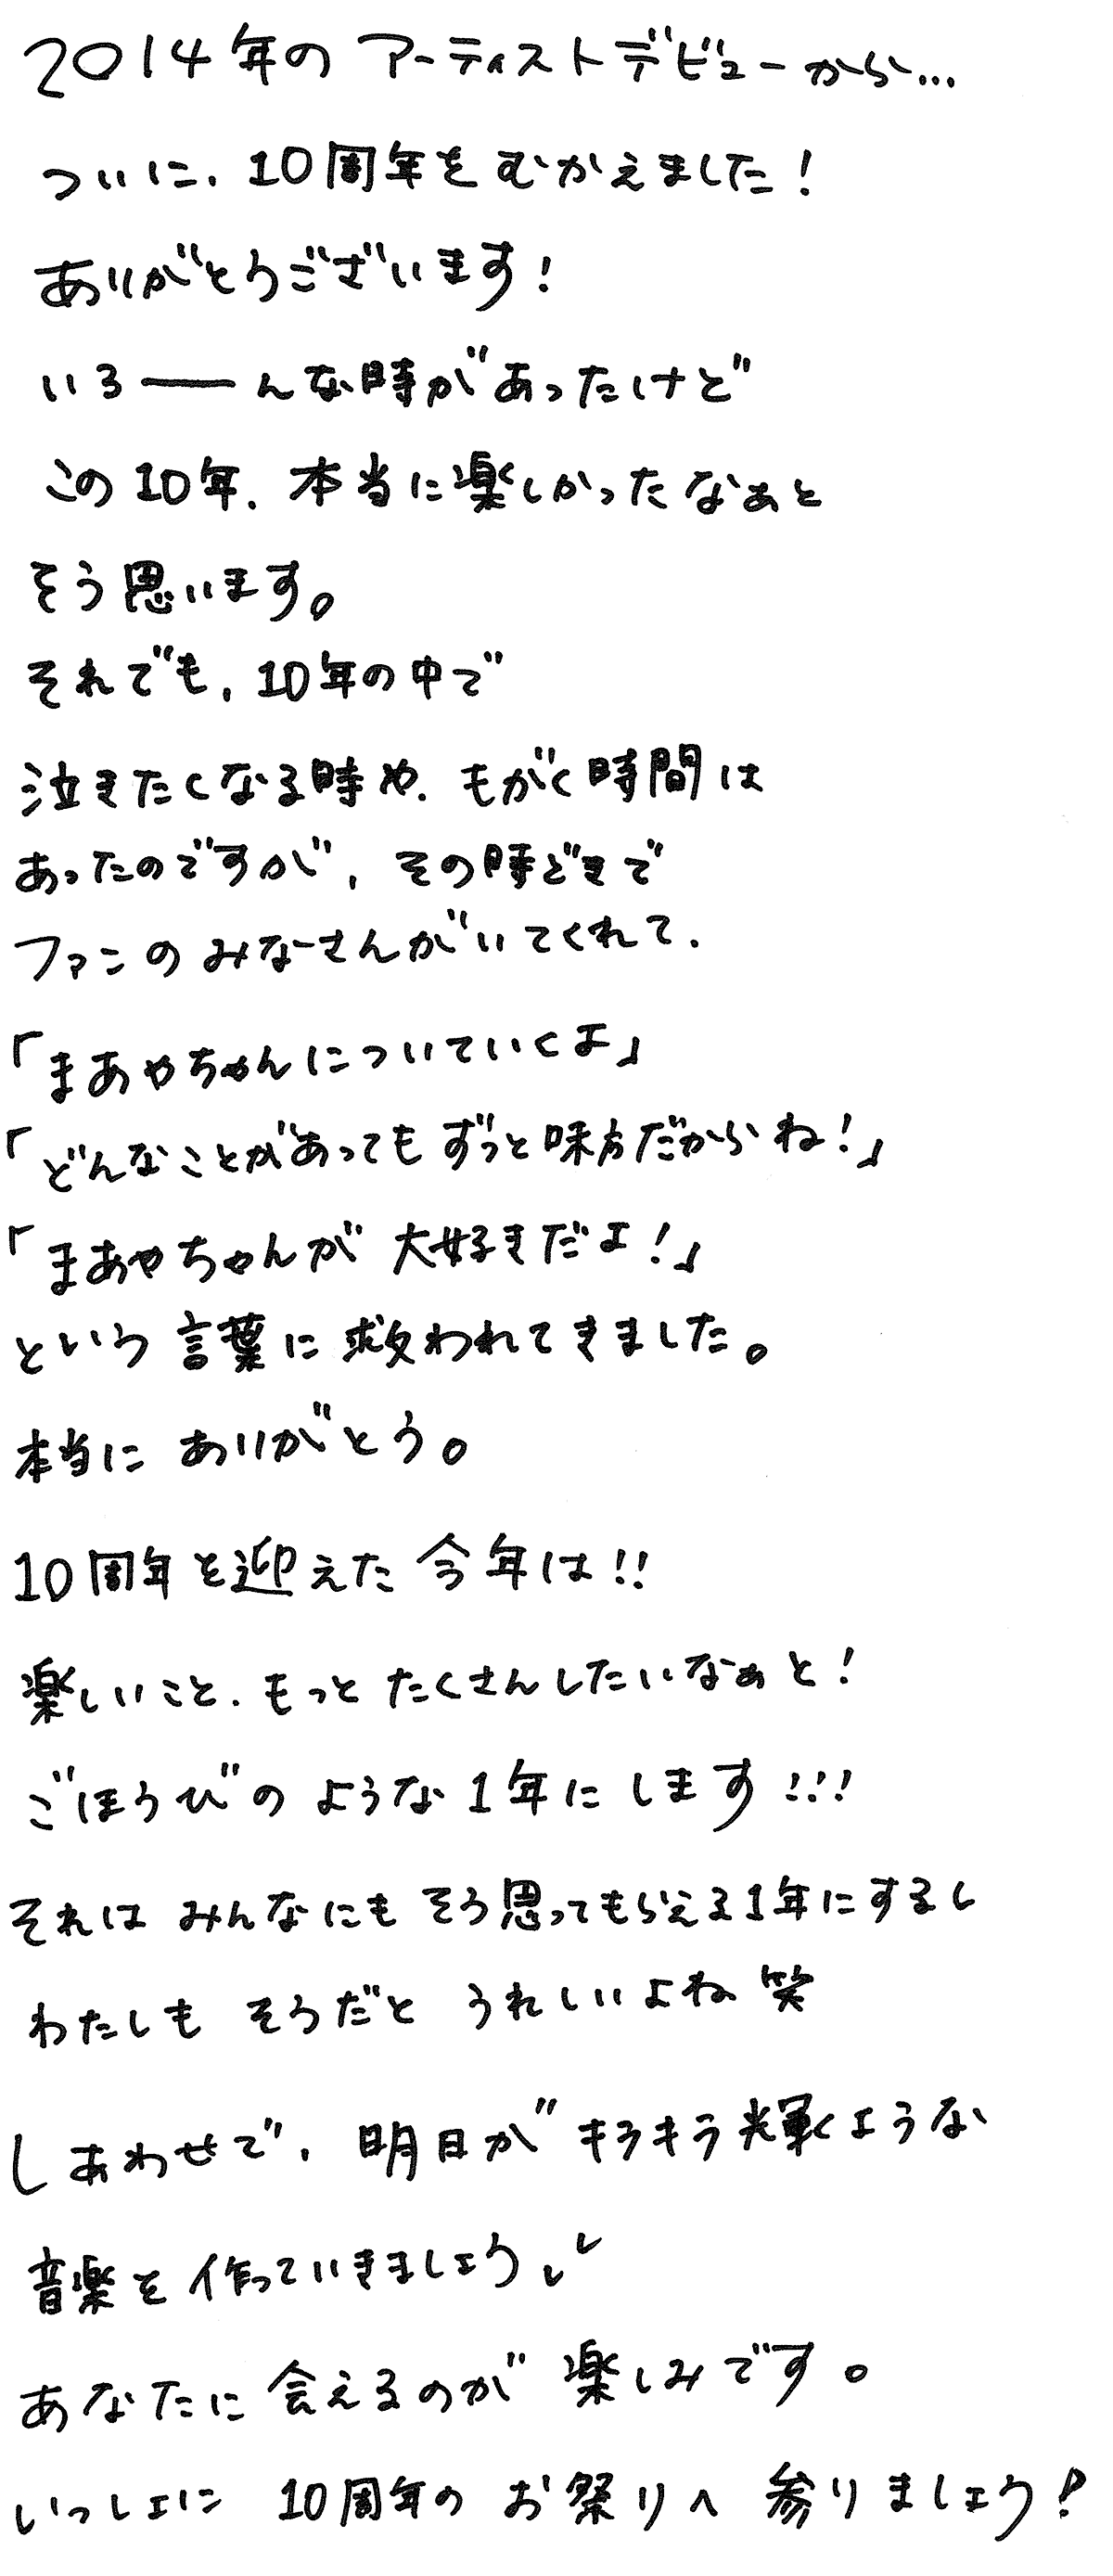 2014年の アーティストデビューから...
ついに、10周年をむかえました!
ありがとうございます!
いろ──んな時があったけど
この10年、本当に楽しかったなぁと
そう思います。
それでも、10年の中で
泣きたくなる時や、もがく時間は
あったのですが、その時どきで
ファンのみなさんがいてくれて、
「まあやちゃんについていくよ」
「どんなことがあってもずっと味方だからね!」
「まあやちゃんが 大好きだよ!」
という言葉に救われてきました。
本当に ありがとう。
10周年を迎えた今年は!!
楽しいこと、もっとたくさんしたいなぁと!
ごほうびのような1年にします!!!
それは みんなにも そう思ってもらえる1年にするし
わたしも そうだと うれしいよね 笑
しあわせで、明日がキラキラ輝くような
音楽を作っていきましょう
あなたに会えるのが 楽しみです。
いっしょに 10周年の お祭りへ 参りましょう!